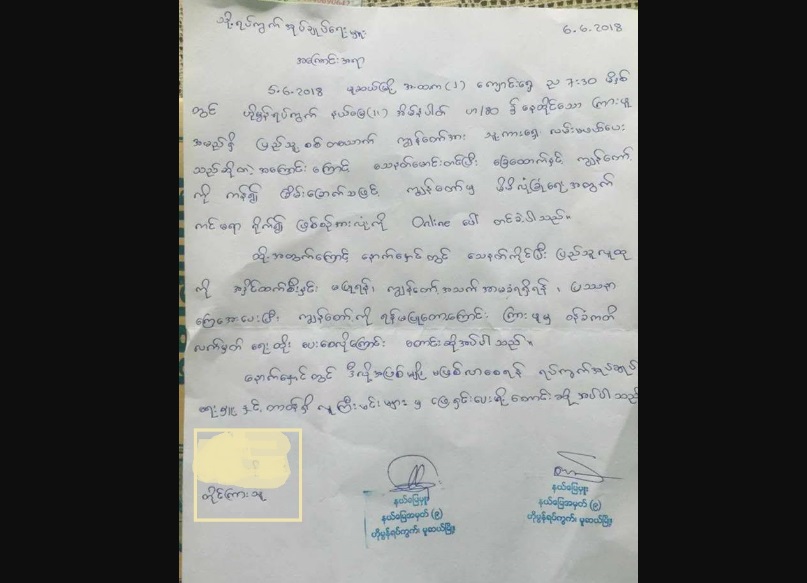 သို့
ရပ်ကွက်အုပ်ချုပ်ရေးမှူး
6.6.2018
အကြောင်းအရာ
5.6.2018 မူဆယ်မြို့ အထက (၁) ကျောင်းရှေ့ ည 7:30 မိနစ်
တွင် ဟိုမွန်ရပ်ကွက် နယ်မြေ(၁၁) အိမ်နံပါတ် ဟ/80 ၌ နေထိုင်သော ကြားမူ
အမည်ရှိ ပြည်သူ့စစ် တယောက် ကျွန်တော်အား သူ့ကားရှေ့ လမ်းမဖယ်ပေး
သည်ဆိုတဲ့ အကြောင်းကြောင့် သေနတ်မောင်းတင်ပြီး ခြေထောက်နှင့် ကျွန်တော့်
ကို ကန်၍ ခြိမ်းခြောက်သဖြင့် ကျွန်တော်မှ မိမိလုံခြုံရေးအတွက်
ကင်မရာ ရိုက်၍ ဖြစ်စဉ်အားလုံးကို Online ပေါ် တင်ခဲ့ပါသည်။
ထို့အတွက်ကြောင့် နောက်နောင်တွင် သေနတ်ကိုင်ပြီး ပြည်သူလူထု
ကို အနိုင်ထက်စီးနင်း မပြုရန်၊ ကျွန်တော့်အသက် အာမခံရရှိရန်၊ ပြဿနာ
ကြေအေးပေးပြီး ကျွန်တော့်ကို ရန်မပြုတော့ကြောင်း ကြားမူမှ ဝန်ခံကတိ
လက်မှတ် ရေးထိုးပေးစေလိုကြောင်း တောင်းဆိုအပ်ပါသည်။
နောက်နောင်တွင် ဒီလိုအဖြစ်မျိုး မဖြစ်လာစေရန် ရပ်ကွက်အုပ်ချုပ်
ရေးမှူးနှင့် တာဝန်ရှိ လူကြီးမင်းများမှ ဖြေရှင်းပေးဖို့ တောင်းဆို အပ်ပါသည်
တိုင်ကြားသူ
နယ်မြေမှူး
နယ်မြေအမှတ် (၉)
ဟိုမွန်ရပ်ကွက်၊ မူဆယ်မြို့။
နယ်မြေမှူး
နယ်မြေအမှတ် (၉)
ဟိုမွန်ရပ်ကွက်၊ မူဆယ်မြို့။